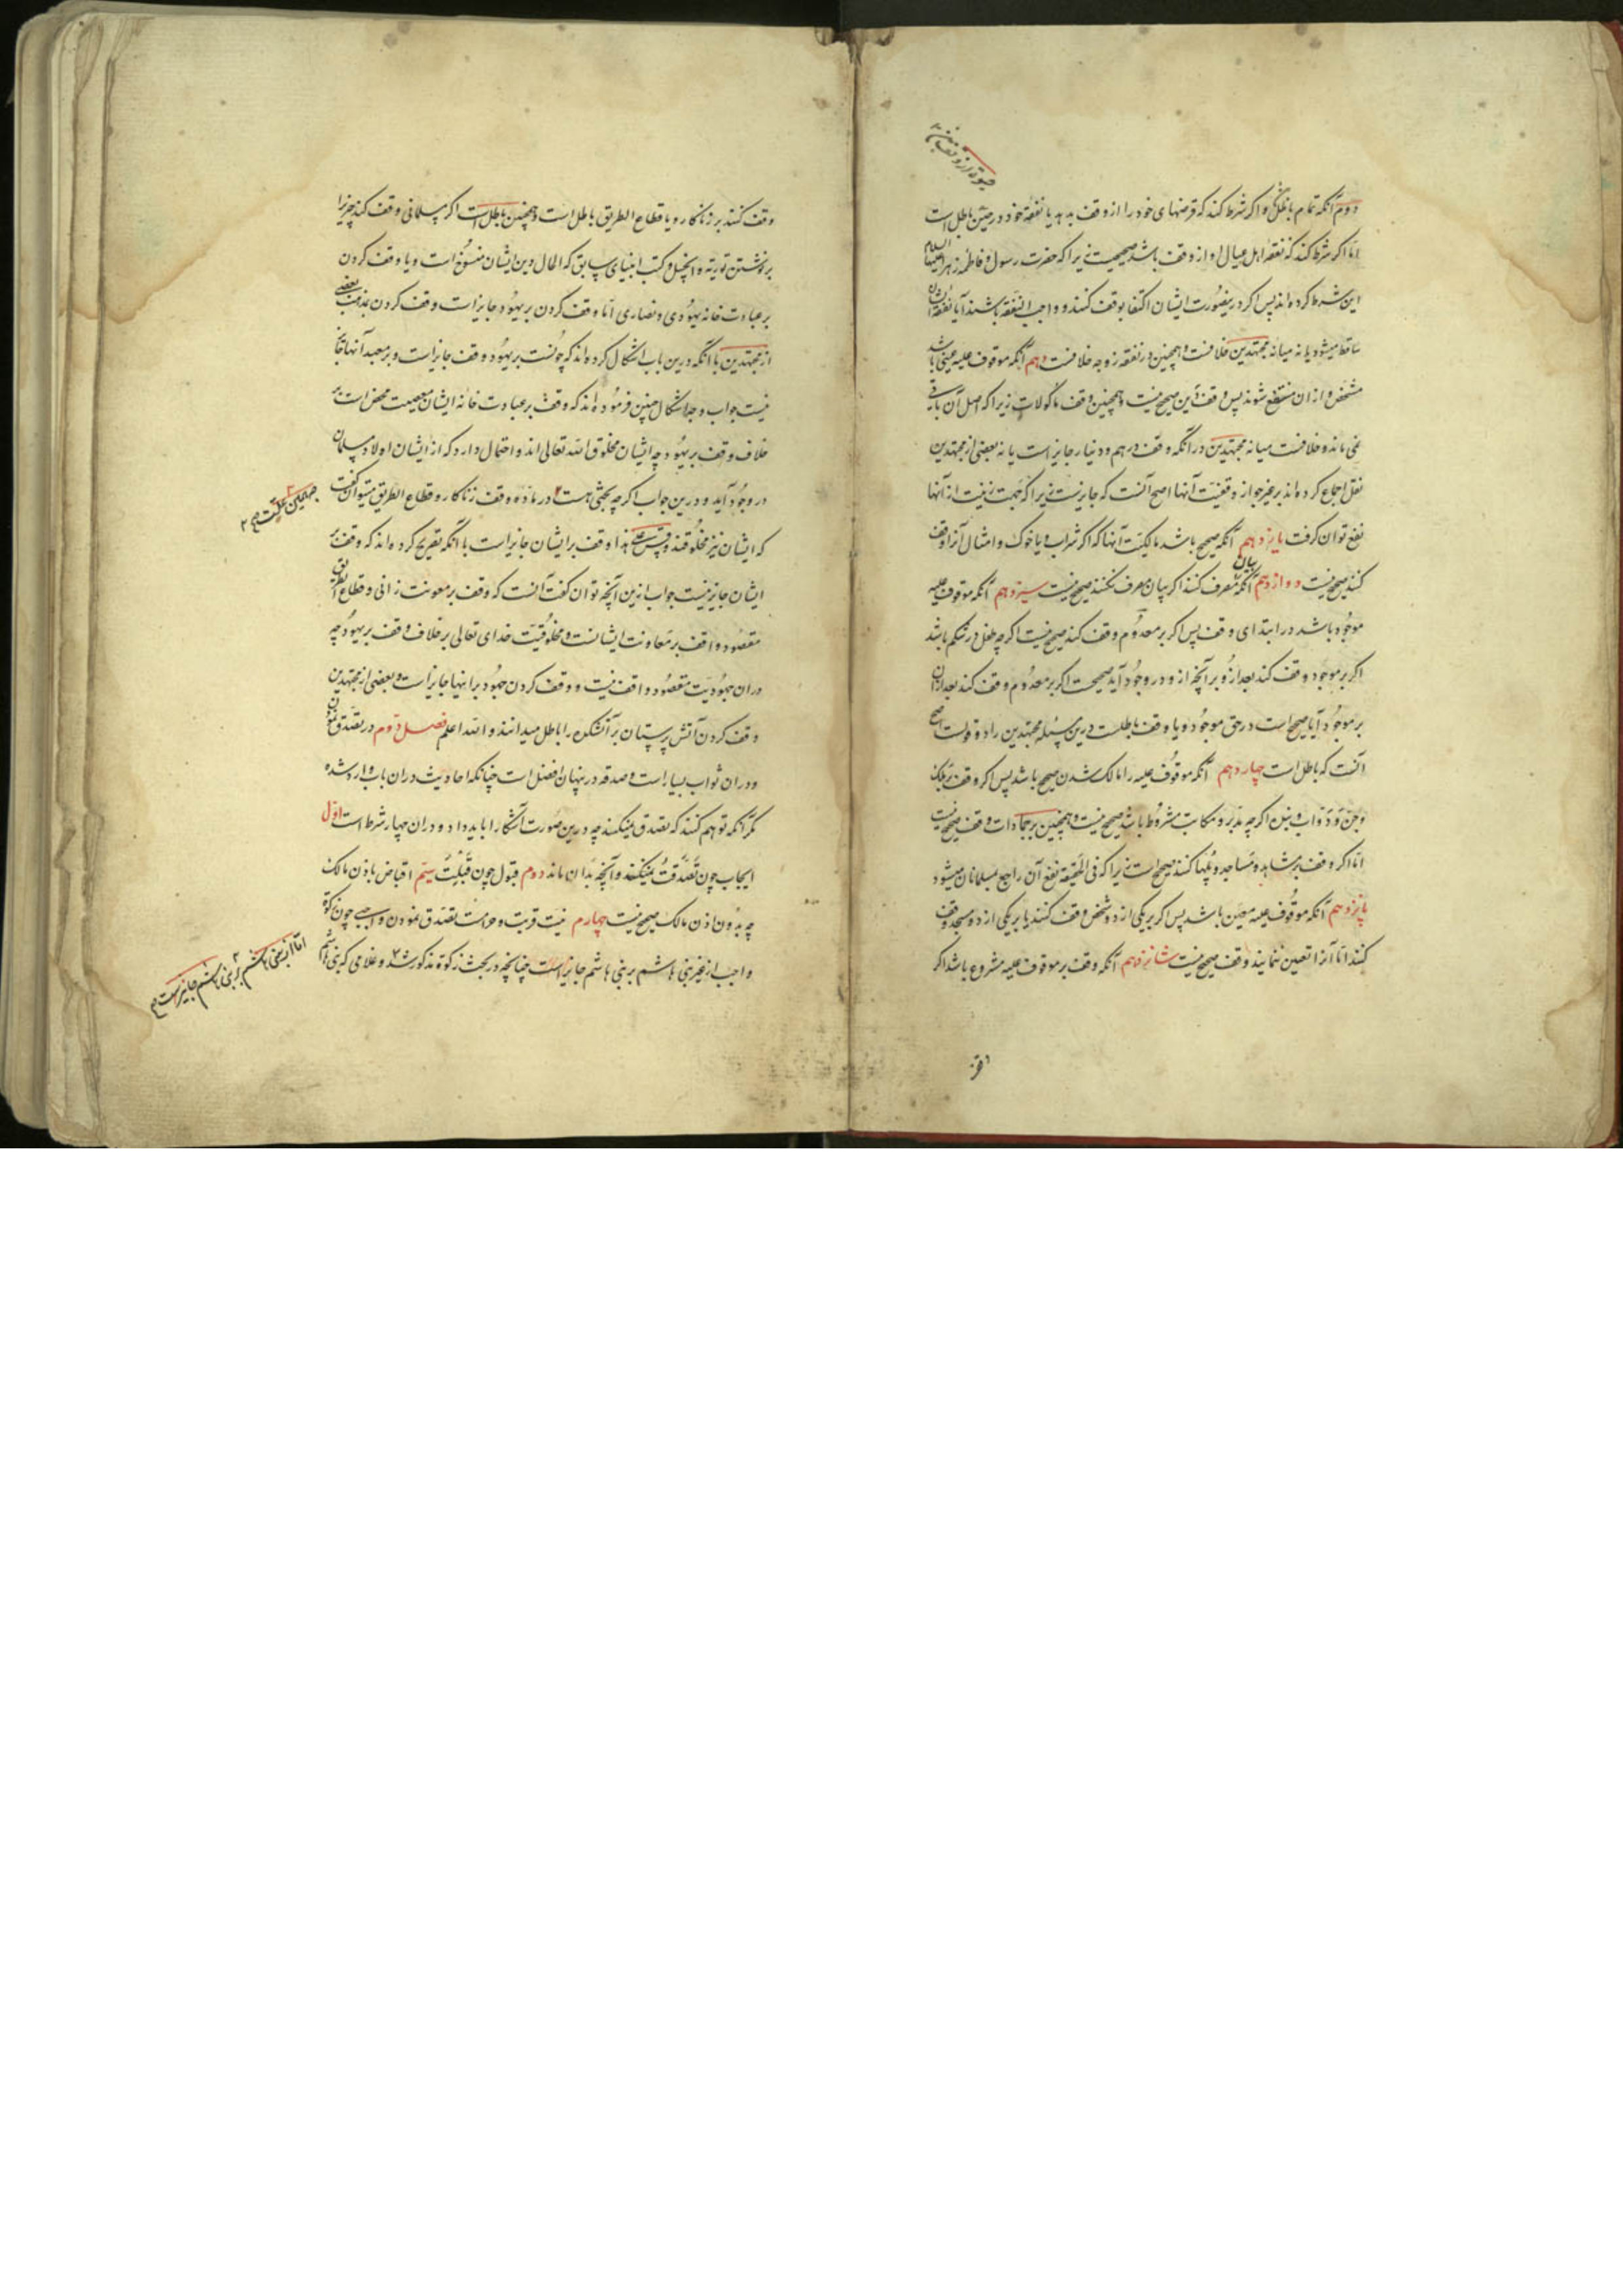 دوم آنکه تمام باطلست و اکر شرط کند که قرضهای خود را از وقف بدهد یا نفقه خود در حین باطل است
اما اکر شرط کند که نفقه اهل عیال او از وقف باشد صحیحست زیرا که حضرت رسول و فاطمه زهرا علیهما السلام
این شرط کرده اند پس اکر درینصورت ایشان اکتفا بوقف کنند و واجب النفقه باشند آیا نفقه ایشان
ساقط میشود یا نه میانه مجتهدین خلافست و همچنین در نفقه زوجه خلافست دهم آنکه موقوف علیه عینی باشد
مشخص و از ان منتفع شوند پس وقف دین صحیح نیست و همچنین وقف ماکولات زیرا که اصل آن باقی
نمی ماند و خلافست میانه مجتهدین در انکه وقف درهم و دینار جایز است یا نه بعضی از مجتهدین
نقل اجماع کرده اند بر غیر جواز وقفیت آنها اصح آنست که جایز نیست زیرا که بجهت زینت از آنها
نفع توان کرفت یازدهم آنکه صحیح باشد مالکیت آنها که اکر شراب و یا خوک و امثال آنرا وقف
کنند صحیح نیست دوازدهم آنکه بیان مصرف کنند اکر بیان مصرف نکنند صحیح نیست سیزدهم آنکه موقوف علیه
موجود باشد در ابتدای وقف پس اکر بر معدوم وقف کند صحیح نیست اکر چه طفل در شکم باشد
اکر بر موجود وقف کند بعد ازو بر آنچه ازو در وجود آید صحیحست اکر بر معدوم وقف کند بعد ازان
بر موجود آیا صحیح است در حق موجود و یا وقف باطلست درین مسئله مجتهدین را دو قولست اصح
آنست که باطل است چهاردهم آنکه موقوف علیه را مالک شدن صحیح باشد پس اکر وقف بر ملک
و جن و دواب و بنده اکر چه مدبر و مکاتب مشروط باشد صحیح نیست و همچنین بر جمادات وقف صحیح نیست
اما اکر وقف بر مشاهد و مساجد و پلها کنند صحیح است زیرا که فی الحقیقه نفع آن راجع بمسلمانان میشود
پانزدهم آنکه موقوف علیه معین باشد پس اکر بر یکی از دو شخص وقف کنند یا بر یکی از دو مسجد وقف
کنند اما آنرا تعیین ننمایند وقف صحیح نیست شانزدهم آنکه وقف بر موقوف علیه مشروع باشد اکر
وقف کنند بر زناکار و یا قطاع الطریق باطل است و همچنین باطل است اکر مسلمانی وقف کند چیزیرا
بر نوشتن توریة و انجیل و کتب انبیای سابق که الحال دین ایشان منسوخ است و یا وقف کردن
بر عبادت خانه یهودی و نصاری اما وقف کردن بر یهود جایز است وقف کردن بمذهب بعضی
از مجتهدین با آنکه درین باب اشکال کرده اند که چونست بر یهود وقف جایز است و بر معبد آنها جایز
نیست جواب وجه اشکال چنین فرموده اند که وقف بر عبادت خانه ایشان معصیت محض است بر
خلاف وقف بر یهود چه ایشان مخلوق الله تعالی اند و احتمال دارد که از ایشان اولاد مسلمان
در وجود آید و درین جواب اکر چه بحثی هست در ماده وقف زناکار و قطاع الطریق میتوان کفت
که ایشان نیز مخلوقند و پس علی هذا وقف بر ایشان جایز است با آنکه تصریح کرده اند که وقف بر
ایشان جایز نیست جواب ازین آنچه توان کفت آنست که وقف بر معونت زانی و قطاع الطریق
مقصود واقف بر معاونت ایشانست و مخلوقیت خدای تعالی بر خلاف وقف بر یهود چه
دران یهودیت مقصود واقف نیست و وقف کردن جهود بر اینها جایز است و بعضی از مجتهدین
وقف کردن آتش پرستان بر آتشکده را باطل میدانند و الله اعلم فصل دوم در تصدق نمودن
و دران ثواب بسیار است و صدقه در پنهان افضل است چنانکه احادیث دران باب وارد شده
مکر آنکه توهم کنند که تصدق نمیکنند چه درین صورت آشکارا باید داد و دران چهار شرط است اول
ایجاب چون تصدقت میکنند و آنچه بدان ماند دوم قبول چون قبلت سیم اقباض باذن مالک
چه بدون اذن مالک صحیح نیست چهارم نیت قربت و حرامست تصدق نمودن واجبی چون زکوة
واجب از غیر بنی هاشم بر بنی هاشم جایز است چنانچه در بحث زکوة مذکور شد و غلامی که بنی هاشم
اما از بنی هاشم بر بنی هاشم جایز است